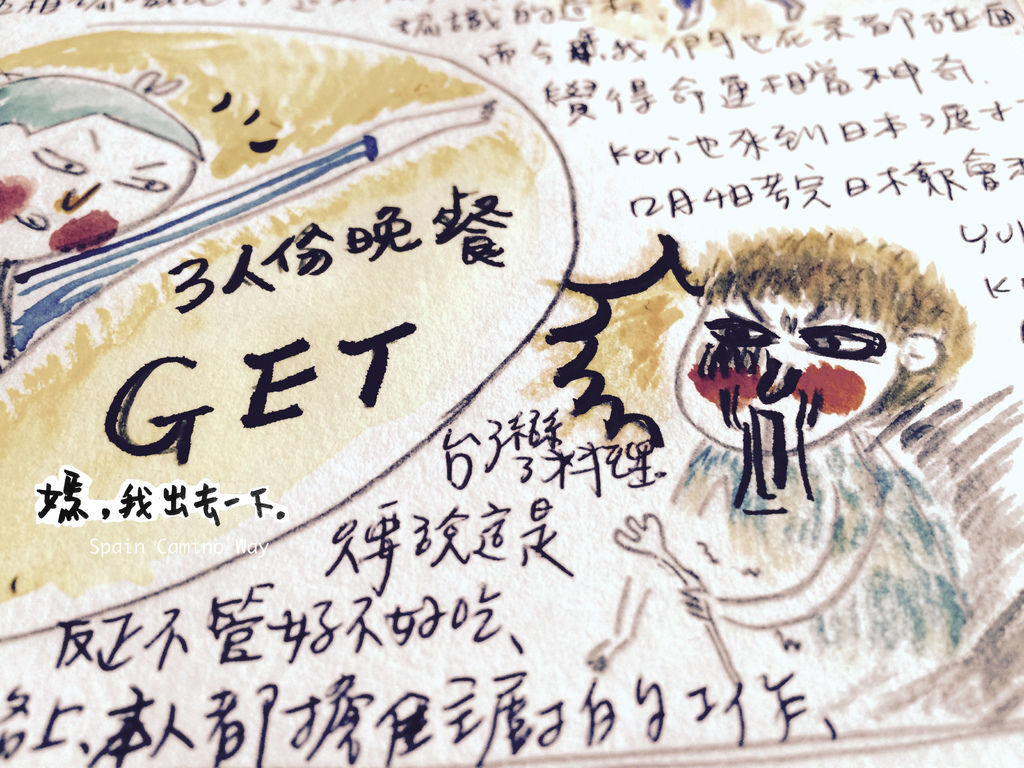 而今我們也在京都碰面
覺得命運相當神奇.
Keri也來到日本了
12月4日考完日本
3人份晚餐
GET
台灣料理.
媽,我出去一下.
Spain Camino Way
只要說這是
反正不管好不好吃、
路上、本人都擔任主廚的工作、